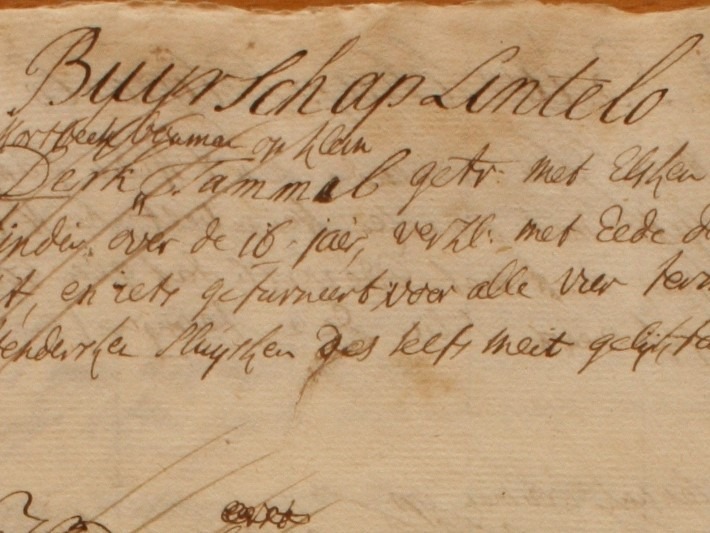 Buyrschap Lintelo
bouman op klein
Derk Tammel getr: met Elsken
over de 16 jaer, verkl: met Eede
en iets gefurneert voor alle vier
Hendersken Sluysken des selfs meit gelijk